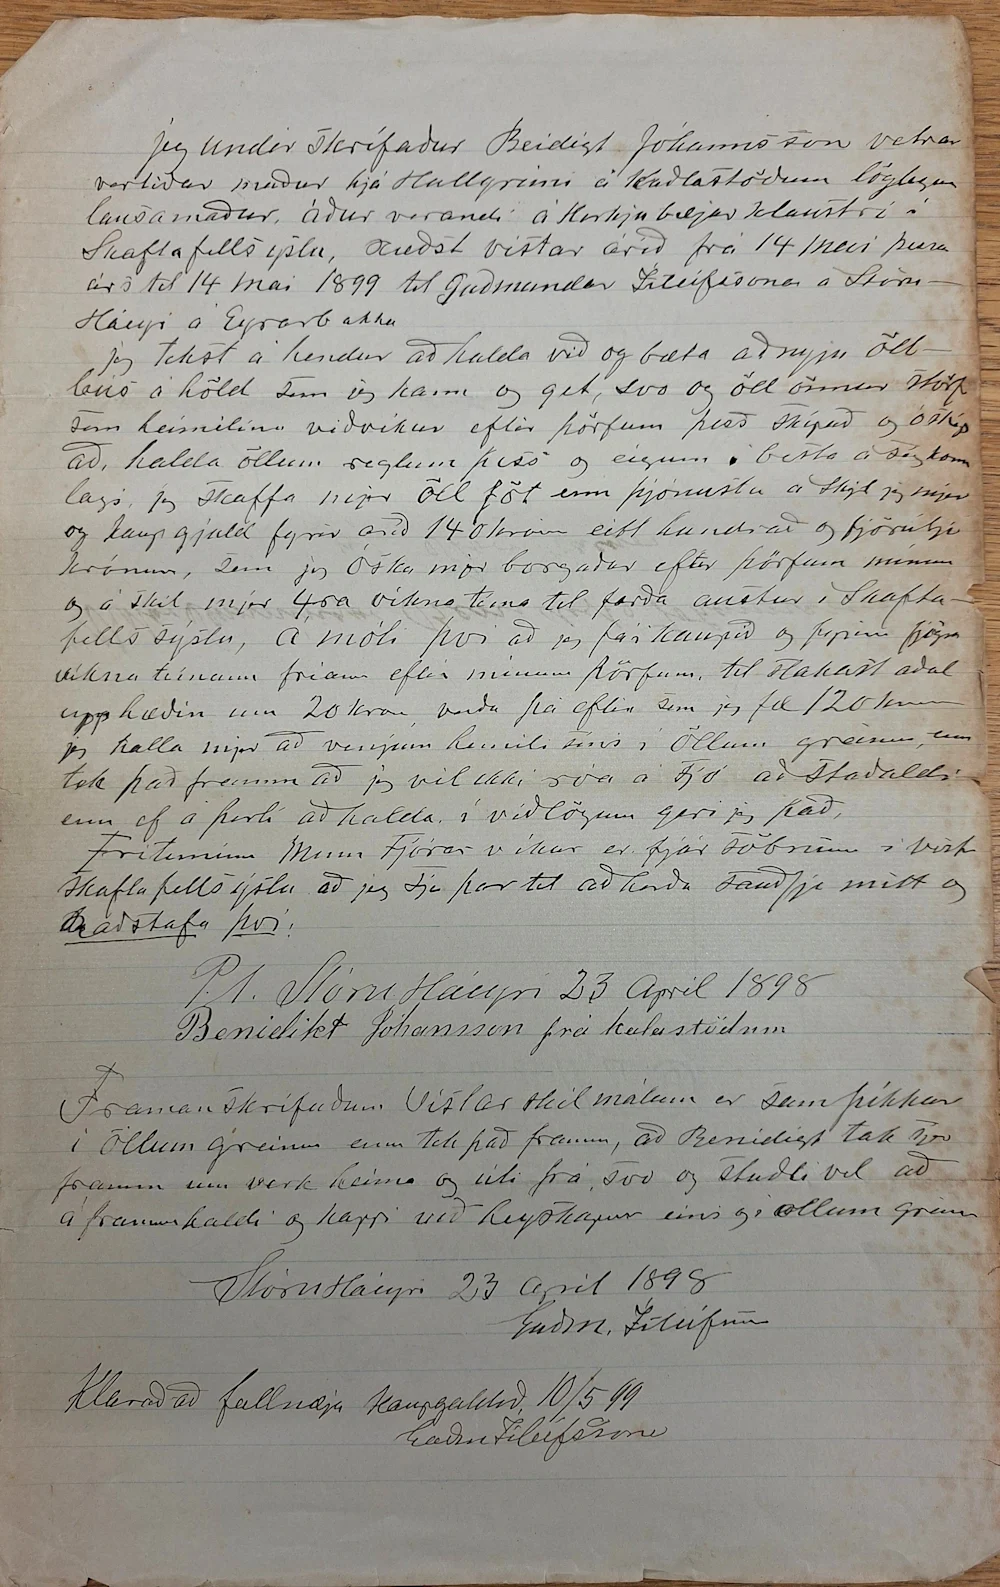 jeg undir skrifaður Beidigt Jóhannsson vetrar
vertiðar maður hjá Hallgrimi á Kaðlastöðum löglegur
lausamaður, áður verandi á Kirkjubæjar Klaustri i
Skaftafells sýslu, ræðst vistar árið frá 14 Mai þessa
árs til 14 Mai 1899 til Guðmundar Ísleifssonar á Stóru-
Háeyri á Eyrarbakka
jeg tekst á hendur að halda við og bæta að nyju öll
bús á höld sem jeg kann og get, svo og öll önnur störf
sem heimilinu viðvikur eftir þörfum þess skipað og óskip
að, halda öllum reglum þess og eigum i besta ásigkomu
lagi, jeg skaffa mjer öll föt enn þjónustu á skil jeg mjer
og kaup gjald fyrir árið 140 krónur eitt hundrað og fjörutyu
krónum, sem jeg óska mjer borgaðar eftir þörfum minum
og á skil mjer 4ra vikna tima til ferða austur i Skafta-
fells sýslu, á móti þvi að jeg fái kaupið og þennan fjögra
vikna timann friann eftir minum þörfum, til slakast aðal
upphæðin um 20 krónur verða þá eftir sem jeg fæ 120 krónur
jeg halla mjer að venjum heimilisins i Öllum greinum, enn
tek það framm að jeg vil ekki róa á sjó að staðaldri
enn ef á þarf að halda i viðlögum geri jeg það,
Fritiminn Minn Fjórar vikur er fjár söknum i vestr
skaftafellssýslu að jeg sje þar til að hirða sauðfje mitt og
ráðstafa þvi.
P.t. Stóru Háeyri 23 April 1898
Benidikt Jóhansson frá kalastöðum
Framanskrifuðum Vistar skilmálum er samþikkur
i öllum greinum enn tek það framm, að Benidigt tak sjer
framm um verk heima og úti frá, svo og stuðli vel að
á framm haldi og kappi við heyskapur eins og i öllum greinum
Stóru Háeyri 23 April 1898
Guðm. Ísleifsson
Klarað að fullnæja kaupgaldið, 10/5 99
Guðm Isleifsson